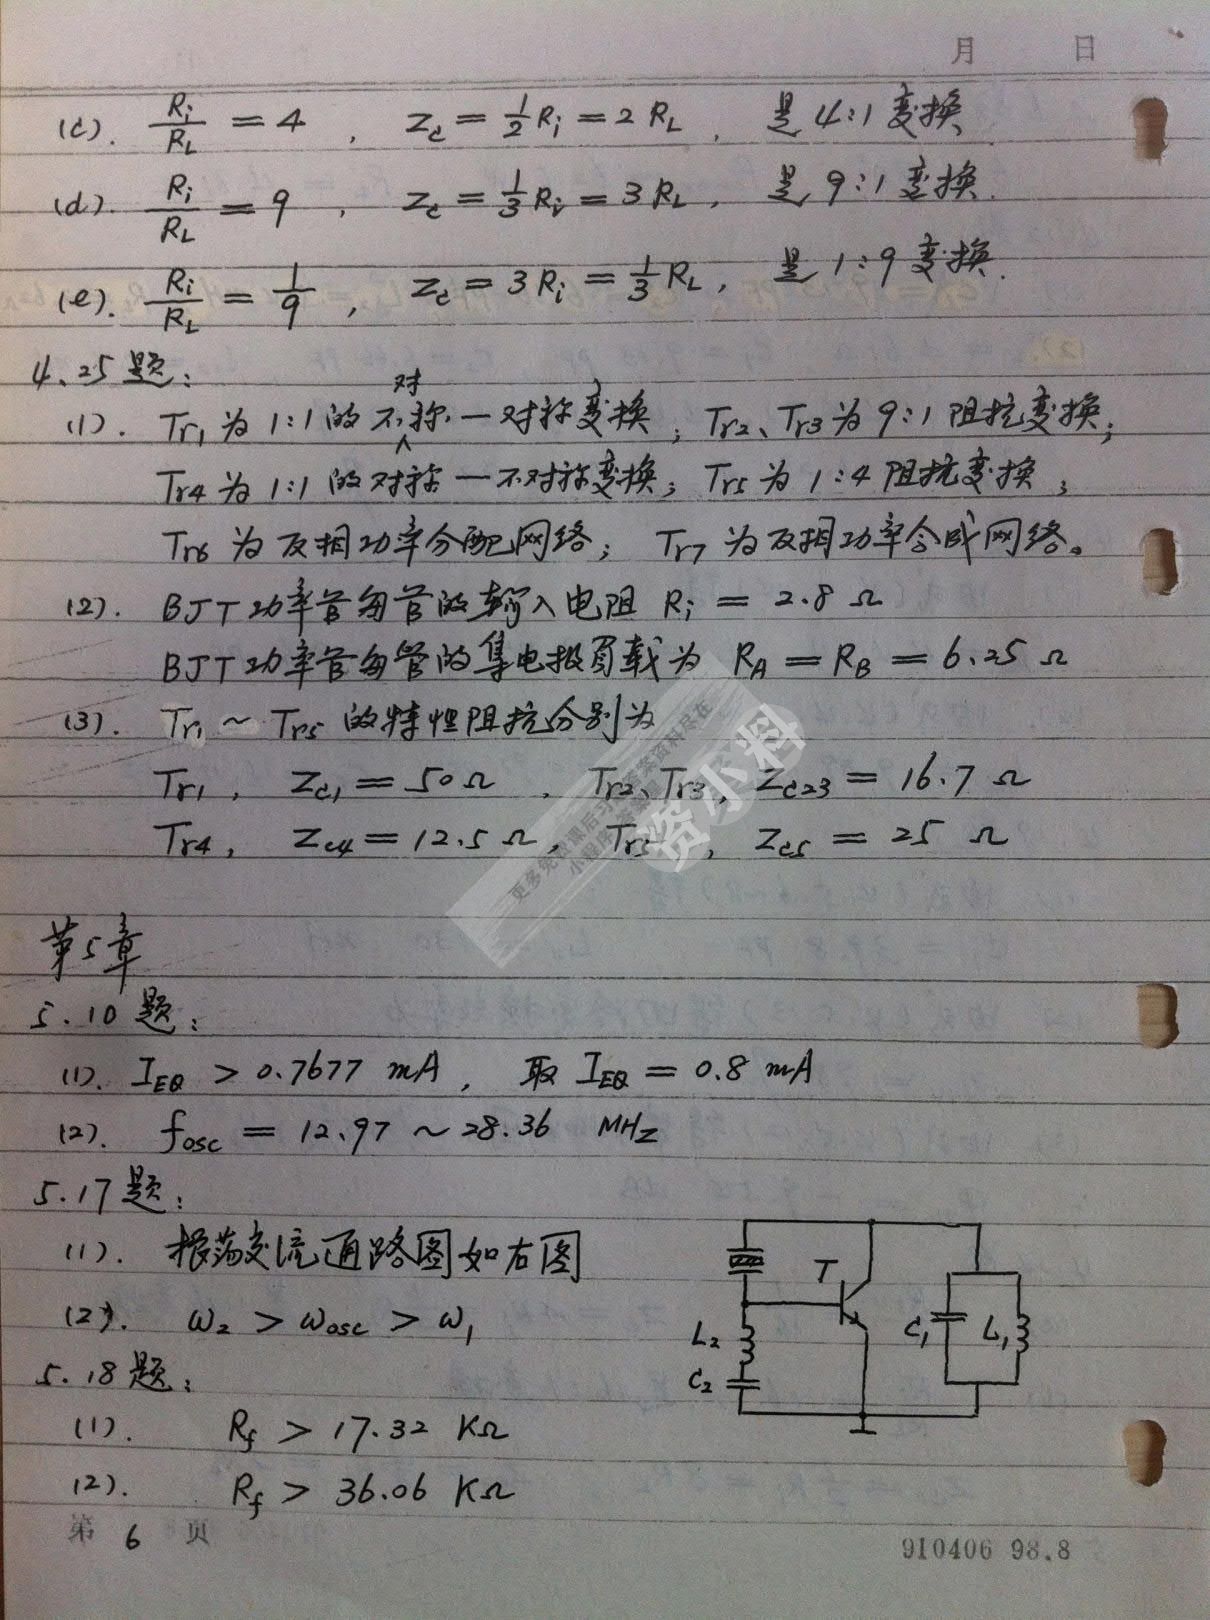 月 日
(c). Ri/RL = 4 , Zc = 1/2 Ri = 2 RL , 是 4:1 变换
(d). Ri/RL = 9 , Zc = 1/3 Ri = 3 RL , 是 9:1 变换.
(e). Ri/RL = 1/9 , Zc = 3 Ri = 1/3 RL , 是 1:9 变换.
4.25 题:
(1). Tr1 为 1:1 的 不对称 — 对称变换 ; Tr2、Tr3 为 9:1 阻抗变换;
Tr4 为 1:1 的 对称 — 不对称变换; Tr5 为 1:4 阻抗变换 ;
Tr6 为 反相功率分配网络; Tr7 为反相功率合成网络。
(2). BJT 功率管每管的输入电阻 Ri = 2.8 Ω
BJT 功率管每管的集电极负载为 RA = RB = 6.25 Ω
(3). Tr1 ~ Tr5 的特性阻抗分别为
Tr1 , Zc1 = 50 Ω , Tr2、Tr3 , Zc23 = 16.7 Ω
Tr4 , Zc4 = 12.5 Ω , Tr5 , Zc5 = 25 Ω
资小料
第5章
5.10 题:
(1). IEQ > 0.7677 mA , 取 IEQ = 0.8 mA
(2). fosc = 12.97 ~ 28.36 MHz
5.17 题:
(1). 振荡交流通路图如右图
(2). ω2 > ωosc > ω1
T
C1 L1
L2
C2
5.18 题:
(1). Rf > 17.32 KΩ
(2). Rf > 36.06 KΩ
第 6 页
910406 98.8